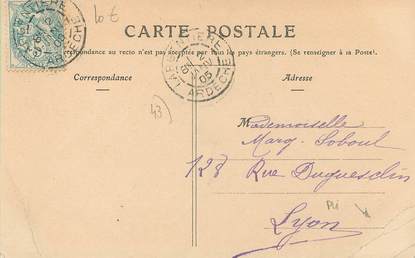 10 €
CARTE POSTALE
correspondance au recto n'est pas acceptée par tous les pays étrangers. (Se renseigner à sa Poste).
Correspondance
Adresse
LARGENTIERE
ARDECHE
05
43
Mademoiselle
Marg. Soboul
128 Rue Duguesclin
Lyon
Pli